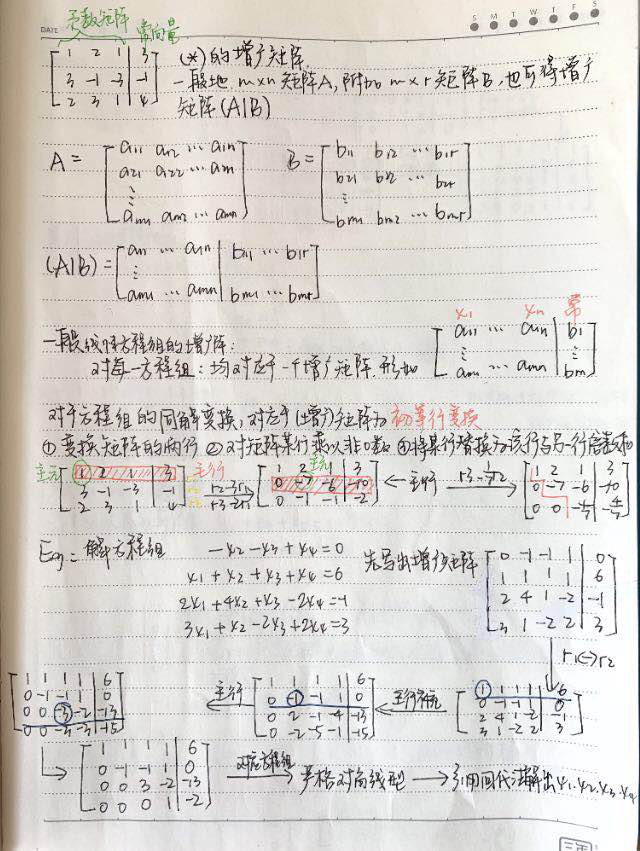 DATE
S M T W T F S
系数矩阵 常向量
[1 2 1 | 3
3 -1 -3 | -1
2 3 1 | 4]
(*)的增广矩阵.
一般地 m×n矩阵A, 附加 m×r矩阵B, 也可得增广
矩阵(A|B)
A = [a11 a12 ⋯ a1n
a21 a22 ⋯ a2n
⋮
am1 am2 ⋯ amn]
B = [b11 b12 ⋯ b1r
b21 b22 ⋯ b2r
⋮
bm1 bm2 ⋯ bmr]
(A|B) = [a11 ⋯ a1n | b11 ⋯ b1r
⋮
am1 ⋯ amn | bm1 ⋯ bmr]
一般线性方程组的增广阵:
对每一方程组: 均对应于一个增广矩阵, 形如
x1 xn 常
[a11 ⋯ a1n | b1
⋮
am1 ⋯ amn | bm]
对于方程组的同解变换, 对应于(增广)矩阵为 初等行变换
①变换矩阵的两行 ②对矩阵某行乘以非0数 ③将某行替换为该行与另一行倍数和
主元 [1 2 1 | 3
3 -1 -3 | -1
2 3 1 | 4] 主行
r2-3r1
r3-2r1
主元
[1 2 1 | 3
0 -7 -6 | -10
0 -1 -1 | -2]
← 主行
r3-1/7r2
[1 2 1 | 3
0 -7 -6 | -10
0 0 -1/7 | -4/7]
Eg: 解方程组
-x2-x3+x4=0
x1+x2+x3+x4=6
2x1+4x2+x3-2x4=-1
3x1+x2-2x3+2x4=3
先写出增广矩阵
[0 -1 -1 1 | 0
1 1 1 1 | 6
2 4 1 -2 | -1
3 1 -2 2 | 3]
r1↔r2
[1 1 1 1 | 6
0 -1 -1 1 | 0
2 4 1 -2 | -1
3 1 -2 2 | 3]
主行
[1 1 1 1 | 6
0 -1 -1 1 | 0
0 2 -1 -4 | -13
0 -2 -5 -1 | -15]
主行
[1 1 1 1 | 6
0 -1 -1 1 | 0
0 0 -3 -2 | -13
0 0 -3 -3 | -15]
[1 1 1 1 | 6
0 -1 -1 1 | 0
0 0 3 -2 | -13
0 0 0 1 | -2]
对应方程组 → 严格对角线型 → 引用回代法解出x1.x2.x3.x4